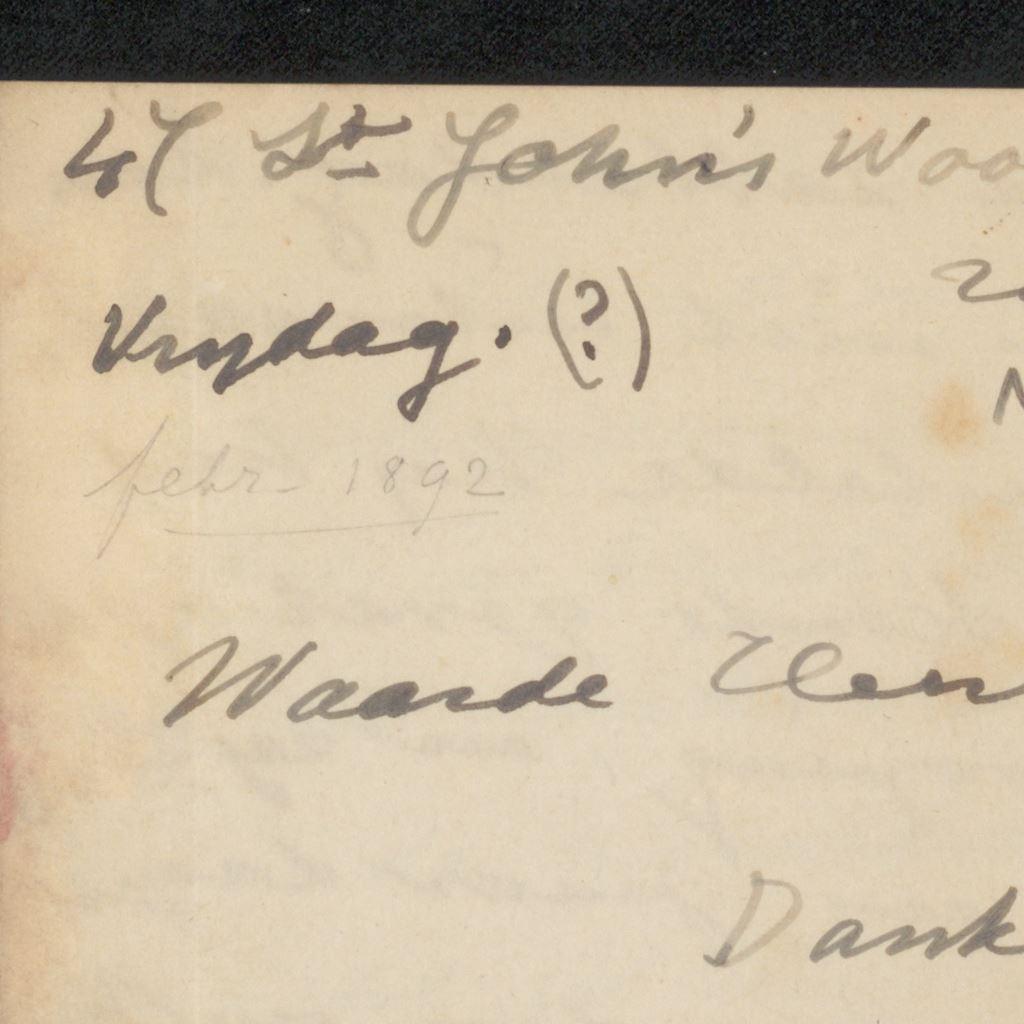 47 St John's Woo
Vrydag. (?)
febr 1892
Waarde Heer
Dank